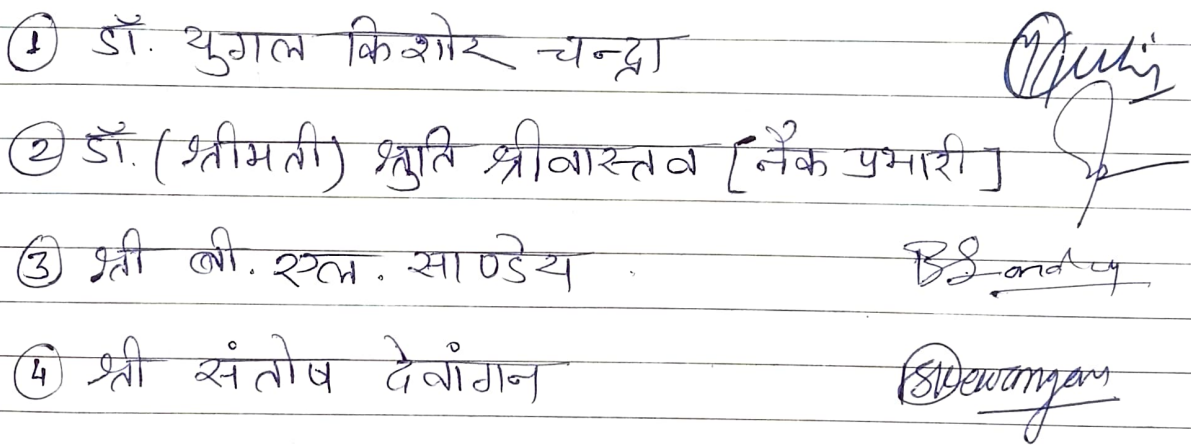 ① डॉ. युगल किशोर चन्द्रा
② डॉ. (श्रीमती) श्रुति श्रीवास्तव [नैक प्रभारी]
③ श्री बी. एल. साण्डेय BSandey
④ श्री संतोष देवांगन SDewangan